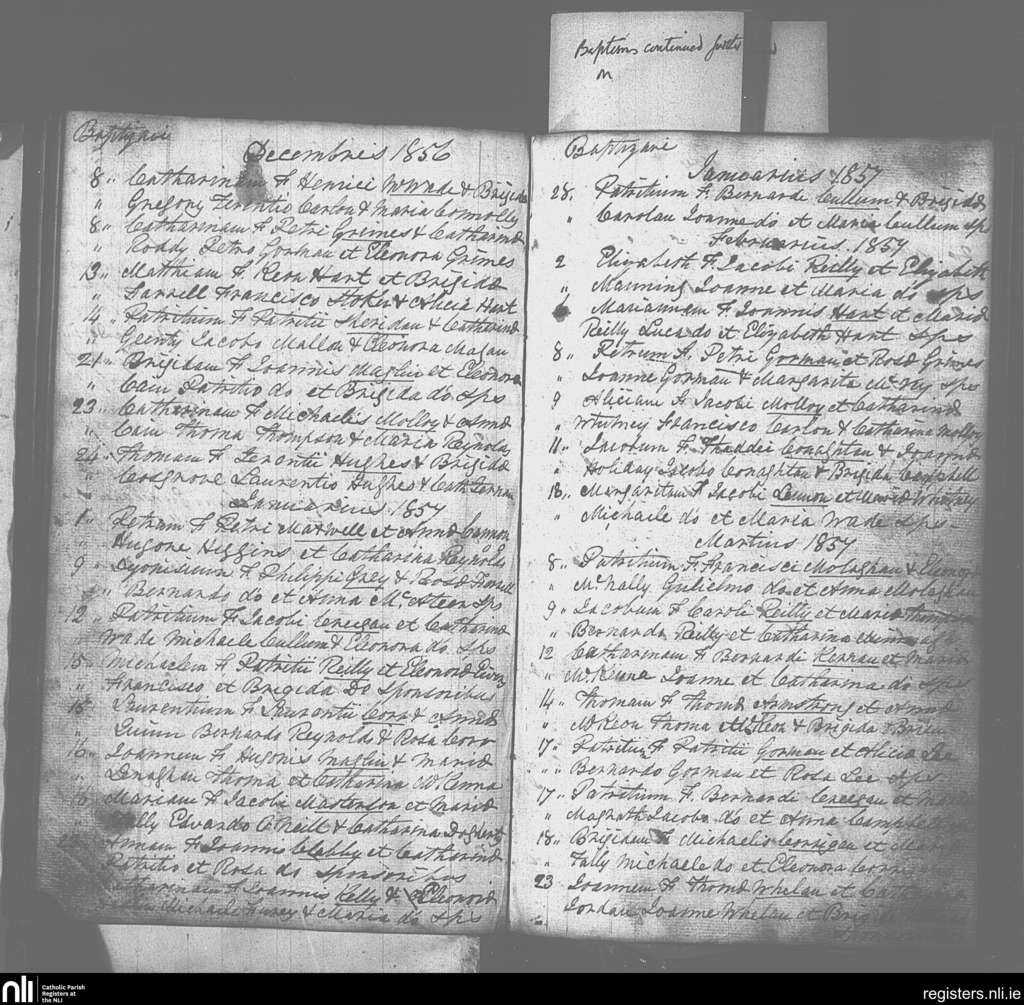 Baptisms continued
Baptizavi
Decembris 1856
8 „ Catharinam F Henrici McWade & Brigida
„ Gregory Terentio Carlon & Maria Connolly
8 „ Catharinam F Petri Grimes & Catharina
„ Roddy Petro Gorman et Eleonora Grimes
13 „ Matthiam F Kera Hart et Brigida
„ Farrell Francisco Stoker & Alicia Hart
14 „ Patritium F Patritii Sheridan & Catharina
„ Geenty Jacobo Mallon & Eleonora Magan
21 „ Brigidam F Joannis Maglin et Eleonora
„ Cain Patritio do et Brigida do Sps
23 „ Catharinam F Michaelis Molloy & Anna
„ Cain Thoma Thompson & Maria Reynolds
24 „ Thomam F Terentii Hughes & Brigida
„ Cosgrove Laurentio Hughes &
Januarius 1857
1 „ Petrum F Petri Maxwell et Anna Cannon
Hugone Higgins et Catharina Reynolds
9 „ Dyonisium F Philippi Grey & Rosa Farrell
„ Bernardo do et Anna McAteer Sps
12 „ Patritium F Jacobi Creegan et Catharina
Wade Michaele Cullum & Eleonora do Sps
15 „ Michaelem F Patritii Reilly et Eleonora
„ Francisco et Brigida Do Sponsoribus
15 „ Laurentium F Laurentii Coro & Anna
„ Quinn Bernardo Reynolds & Rosa Coro
16 „ Joannem F Hugonis Maglin & Maria
„ Lenaghan Thoma et Catharina McKenna
16 Mariam F Jacobi Masterson et Maria
Edvardo O'Neill & Catharina Dogherty
Annam F Joannis Clabby et Catharina
Patritio et Rosa do Sponsoribus
Catharinam F Joannis Kelly & Eleonora
Michaele & Maria do Sps
Baptizavi
Januarius 1857
28. Patritium F Bernardi Cullum & Brigida
„ Carolan Joanne do et Maria Cullum Sps
Februarius 1857
2 Elizabeth F Jacobi Reilly et Elizabeth
„ Manning Joanne et Maria do Sps
Mariannam F Joannis Hart et Maria
Reilly Lucardo et Elizabeth Hart Sps
8 „ Petrum F. Petri Gorman et Rosa Grimes
„ Joanne Gorman & Margarita McVey Sps
9 Aliciam F Jacobi Molloy et Catharina
„ Whitney Francisco Carlon & Catharina Molloy
11 „ Jacobum F Thaddei Conaghton & Joanna
„ Holiday Jacobo Conaghton & Brigida Campbell
18 „ Margaritam F Jacobi Lennon et Maria Whitney
„ Michaele do et Maria Wade Sps
Martius 1857
8 „ Patritium F Francisci Molaghan & Eleonora
„ McNally Gulielmo do et Anna Molaghan
9 „ Jacobum F Caroli Reilly et Maria
„ Bernardo Reilly et Catharina
12 Catharinam F Bernardi Kernan et Maria
„ McKenna Joanne et Catharina do Sps
14 „ Thomam F Thoma Armstrong et Anna
„ McKeon Thoma McKeon & Brigida OBrien
17 „ Patritium F Patritii Gorman et Alicia Lee
„ „ Bernardo Gorman et Rosa Lee Sps
17 „ Patritium F. Bernardi Creegan et
„ Magrath Jacobo do et Anna Campbell
18 „ Brigidam F Michaelis Corrigan et
„ Tally Michaele do et Eleonora
23 Joannem F Thoma Whelan et
Jordan Joanne Whelan et
nli
Catholic Parish
Registers at
the NLI
registers.nli.ie